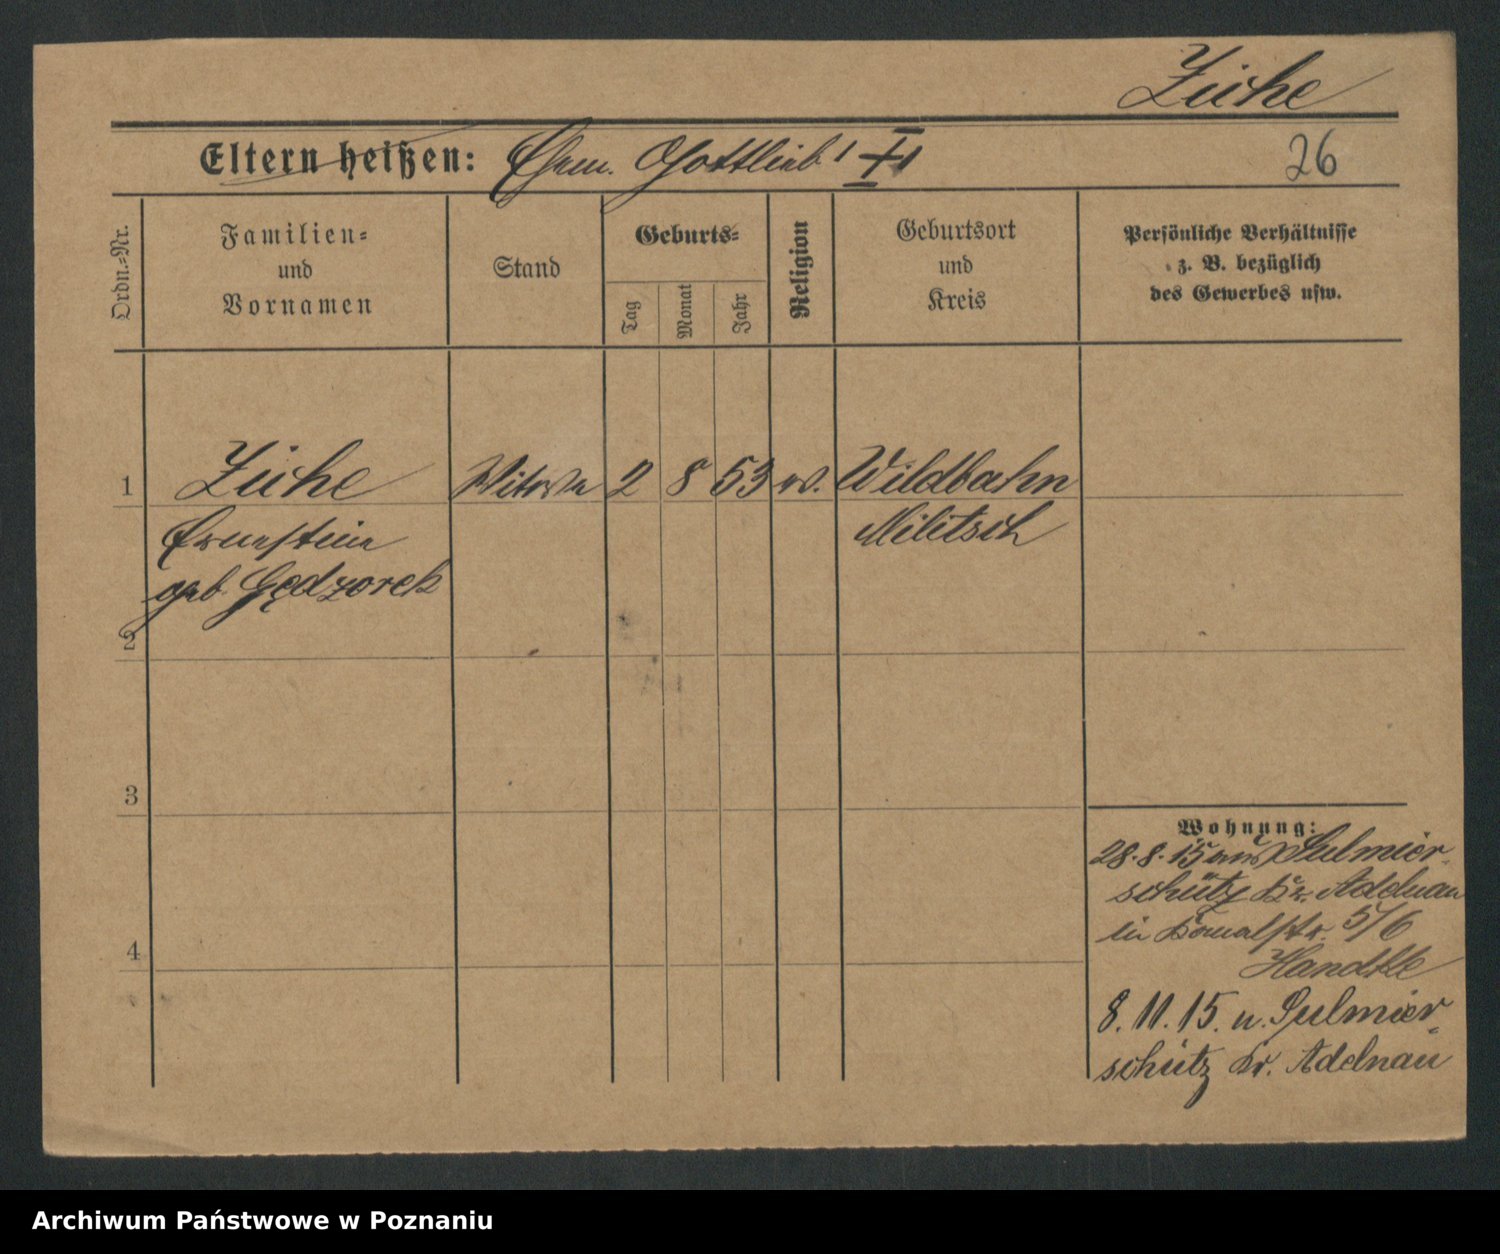 Zúche
Eltern heißen: Ehem. Gottlieb
26
Ordn.=Nr.
Familien=
und
Vornamen
Stand
Geburts=
Tag
Monat
Jahr
Religion
Geburtsort
und
Kreis
Persönliche Verhältnisse
z. B. bezüglich
des Gewerbes usw.
1 Zúche Witwe 2 8 53 ev. Wildbahn
Ernestine Militsch
geb. Gędzorek
2
3
4
Wohnung:
28.8.15 aus Sulmier-
schütz Kr. Adelnau
in 5/6
Handtke
8.11.15. n. Sulmier-
schütz Kr. Adelnau
Archiwum Państwowe w Poznaniu